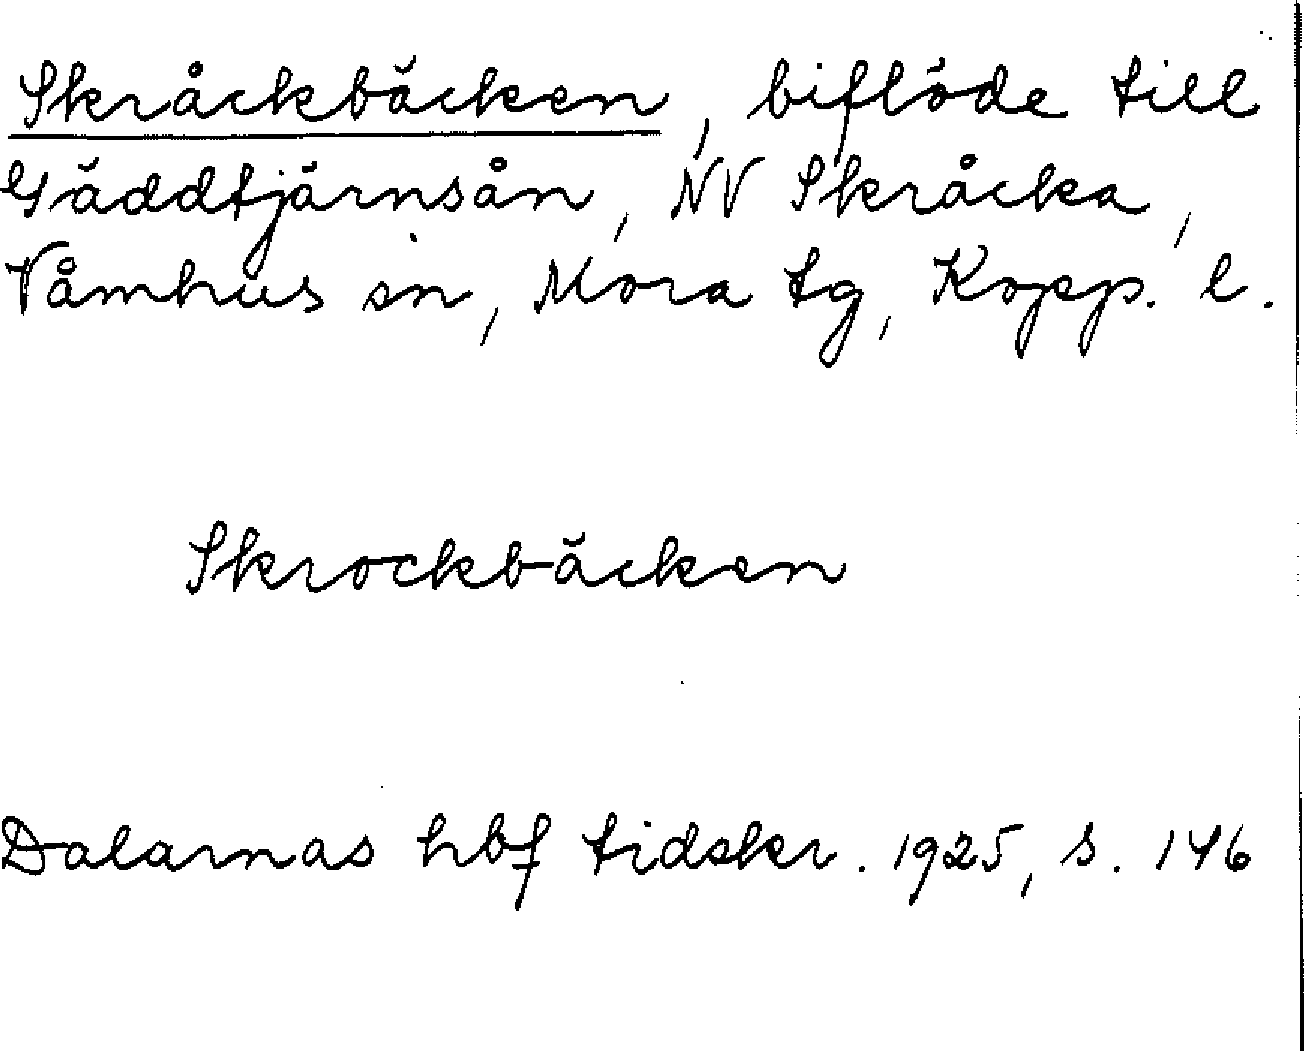 Skråckbäcken, biflöde till
Gäddtjärnsån, NV Skråcka,
Våmhus sn, Mora tg, Kopp. l.
Skrockbäcken
Dalarnas hbf tidskr. 1925, s. 146